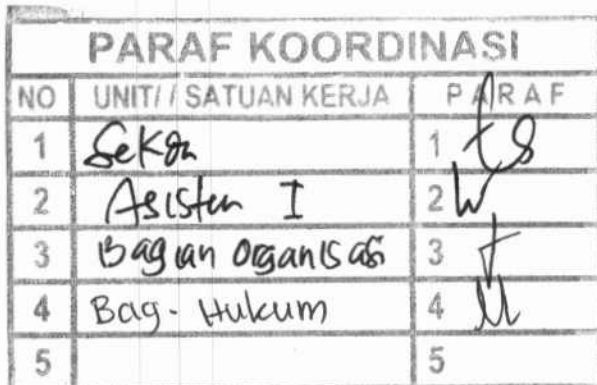 PARAF KOORDINASI
NO UNIT/ / SATUAN KERJA PARAF
1 Sekda 1
2 Asisten I 2
3 Bagian Organisasi 3
4 Bag. Hukum 4
5 5